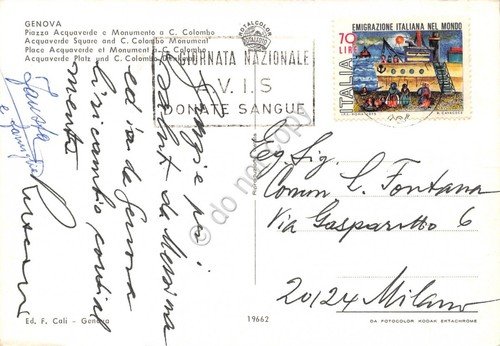 GENOVA
Piazza Acquaverde e Monumento a C. Colombo
Acquaverde Square and C. Colombo Monument
Place Acquaverde et Monument à C. Colombo
Acquaverde Platz und C. Colombo
FOTALCOLOR
GIORNATA NAZIONALE
A.V.I.S
DONATE SANGUE
70
LIRE
EMIGRAZIONE ITALIANA NEL MONDO
ITALIA
Grazie per i
saluti da Messina
ed io da Genova
li ricambio cordial
mente
Fausta
Eg. Sig.
Comm L. Fontana
Via Gasparotto 6
20124 Milano
© do not copy
Ed. F. Cali - Genova
19662
DA FOTOCOLOR KODAK EKTACHROME